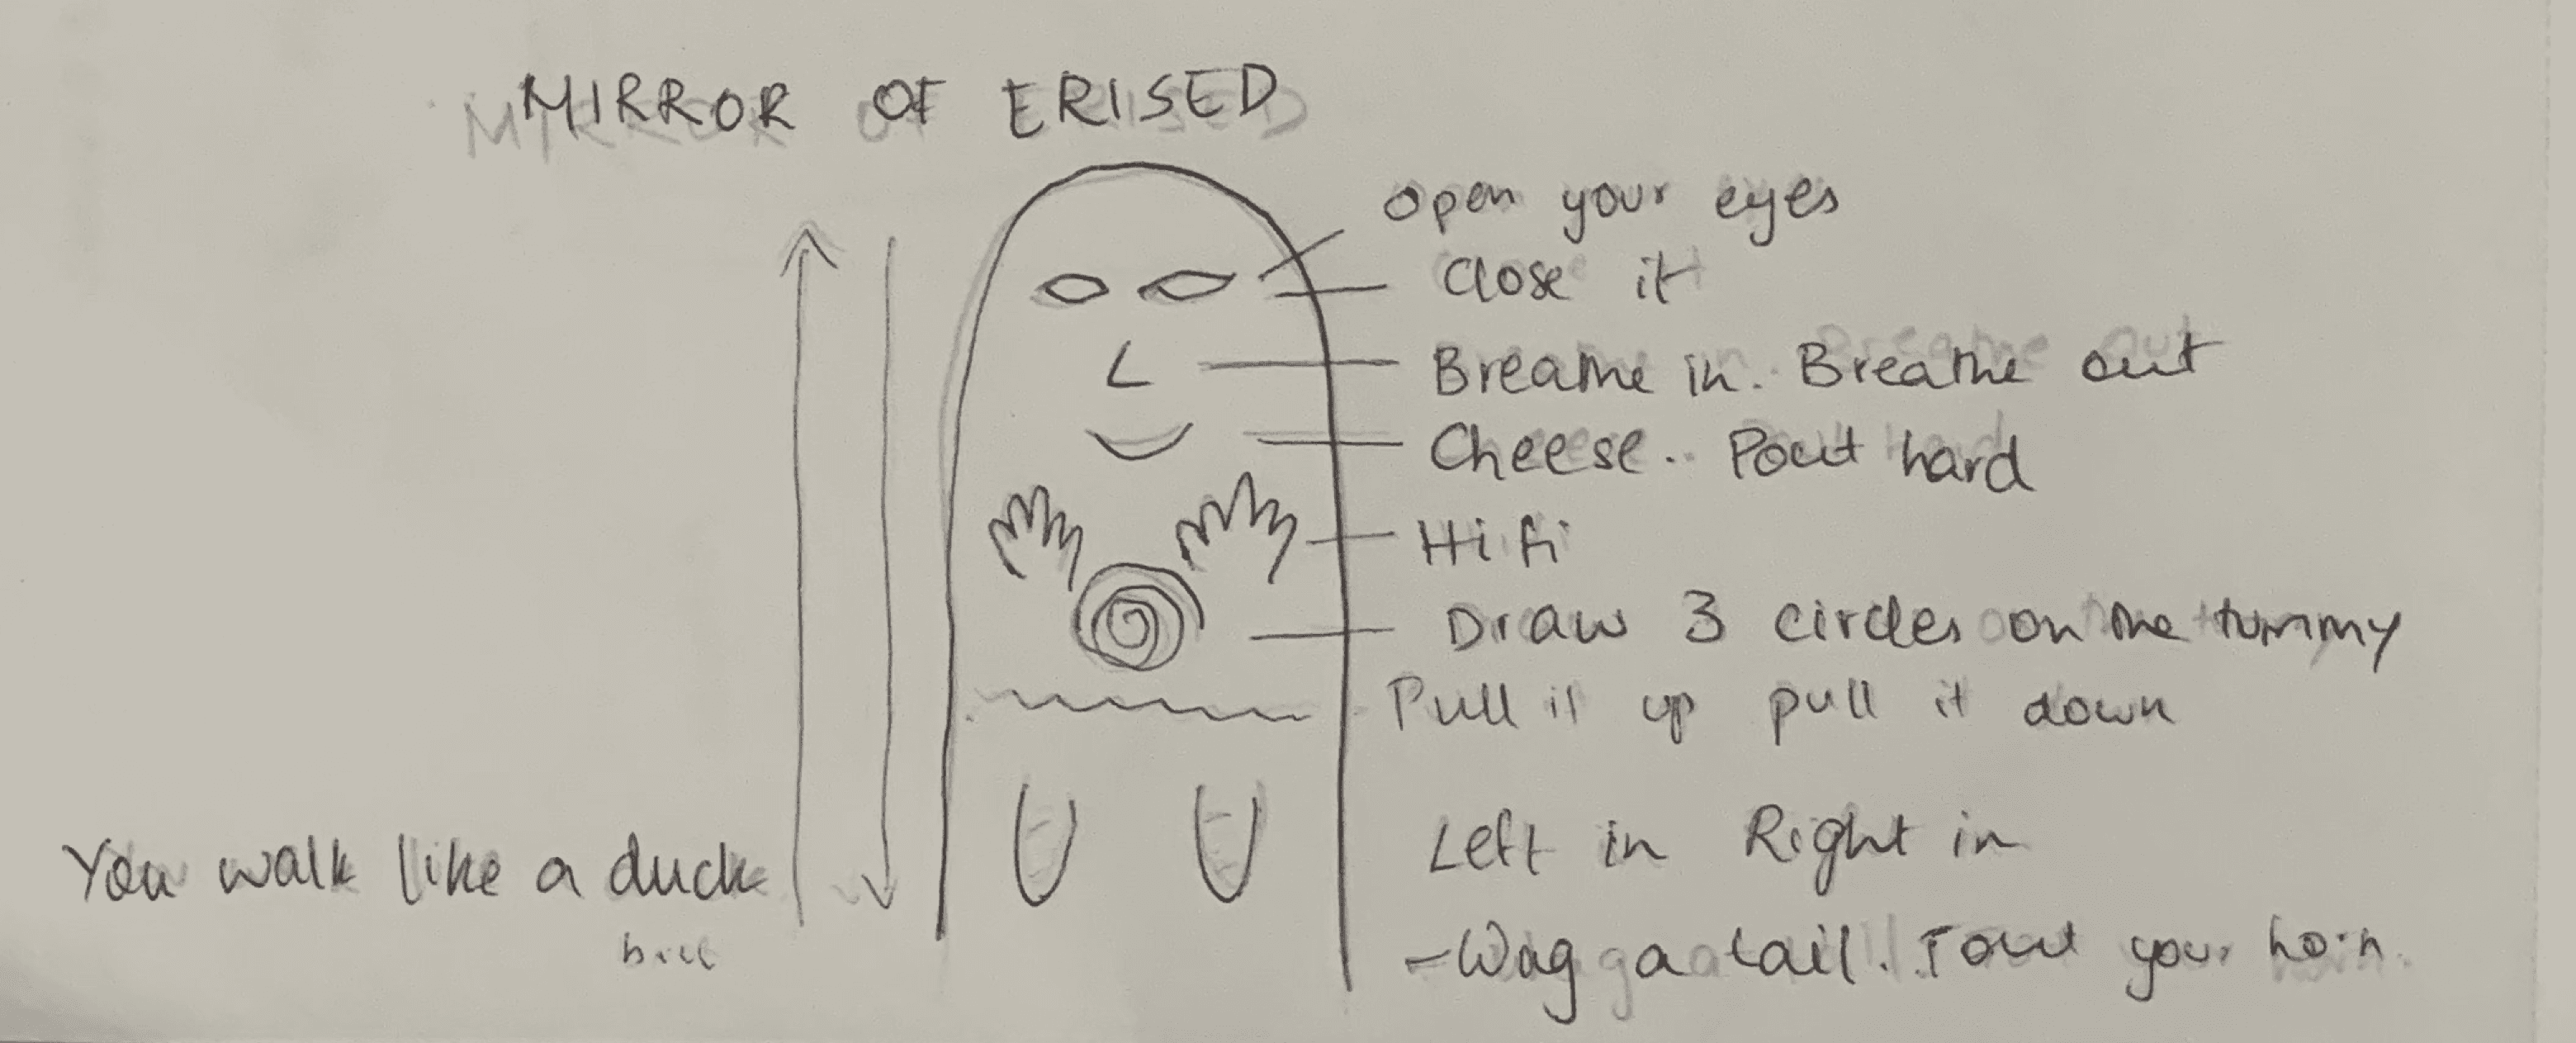 MIRROR OF ERISED
Open your eyes
Close it
Breathe in. Breathe out
Cheese. Pout hard
Hi fi
Draw 3 circles on the tummy
Pull it up pull it down
Left in Right in
You walk like a duck
- Wag a tail. Tout your horn.